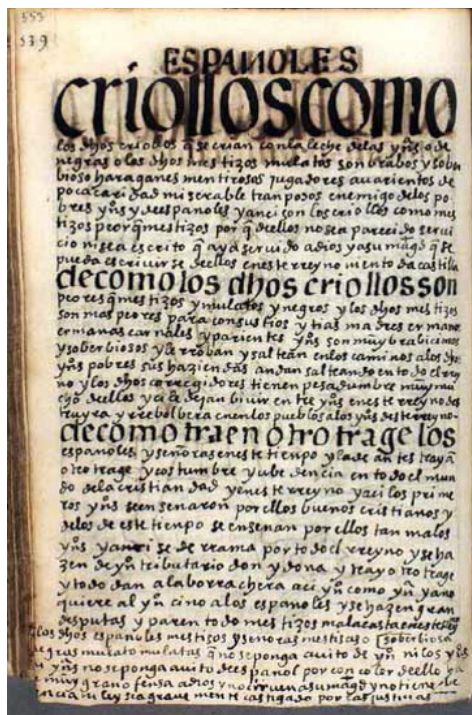 553
539
ESPAÑOLES
criollos como
los dhos criollos q̃ se crian con la leche de las yn̄s o de
negras o los dhos mestizos mulatos son brabos y sober
bioso haraganes mentirosos jugadores auarientos de
poca caridad miserable tranposos enemigo de los po
bres yn̄s y de españoles y anci son los criollos como mes
tizos peor q̃ mestizos por q̃ dellos no se a parecido serui
cio ni sea escrito q̃ aya seruido a dios y a su mag̃d q̃ se
pueda escriuir se dellos en este rreyno ni en toda castilla
de como los dhos criollos son
peores q̃ mestizos y mulatos y negros y los dhos mestizos
son mas peores para con sus tios y tias madres ermano
ermanas carnales y parientes yn̄s son muy brabicimos
y soberbiosos y le rroban y saltean en los caminos a los dhos
yn̄s pobres sus haziendas andan salteando en todo el rrey
no y los dhos corregidores tienen pesadumbre muy mu
cho dellos y ci le dejan biuir entre yn̄s en este rreyno des
truyra y rrebolbera en los pueblos a los yn̄s deste rreyno
de como traen otro trage los
españoles y señoras en este tienpo y la de antes trayã
otro trage y costumbre y ubedencia en todo el mun
do de la cristiandad y en este rreyno y aci los prime
ros yn̄s se ensenaron por ellos buenos cristianos y
de los de este tienpo se ensenan por ellos tan malos
yn̄s y anci se derrama por todo el rreyno y se ha
zen de yn̄ tributario don y dona y tray otro trage
y todo dan a la borrachera aci yn̄ como yn̄ y a no
quiere al yn̄ cino a los españoles y se hazen gran
desputas y paren todo mestizos mala casta en este rreyno
los dhos españoles mestisos y señoras mestisas o soberbiosa
negras mulato mulatas q̃ no se ponga auito de yn̄ ni los yn̄s
yn̄s no se ponga auito de español por con color dello
muy grano fensa a dios y no ciruen a su mag̃d y no tiene
ley sea graue mente castigado por las justicias